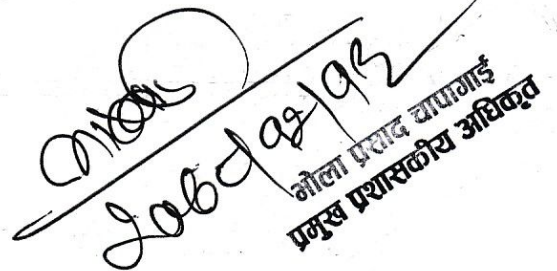 २०८१/१२/१३
भोला प्रसाद चापागाई
प्रमुख प्रशासकीय अधिकृत